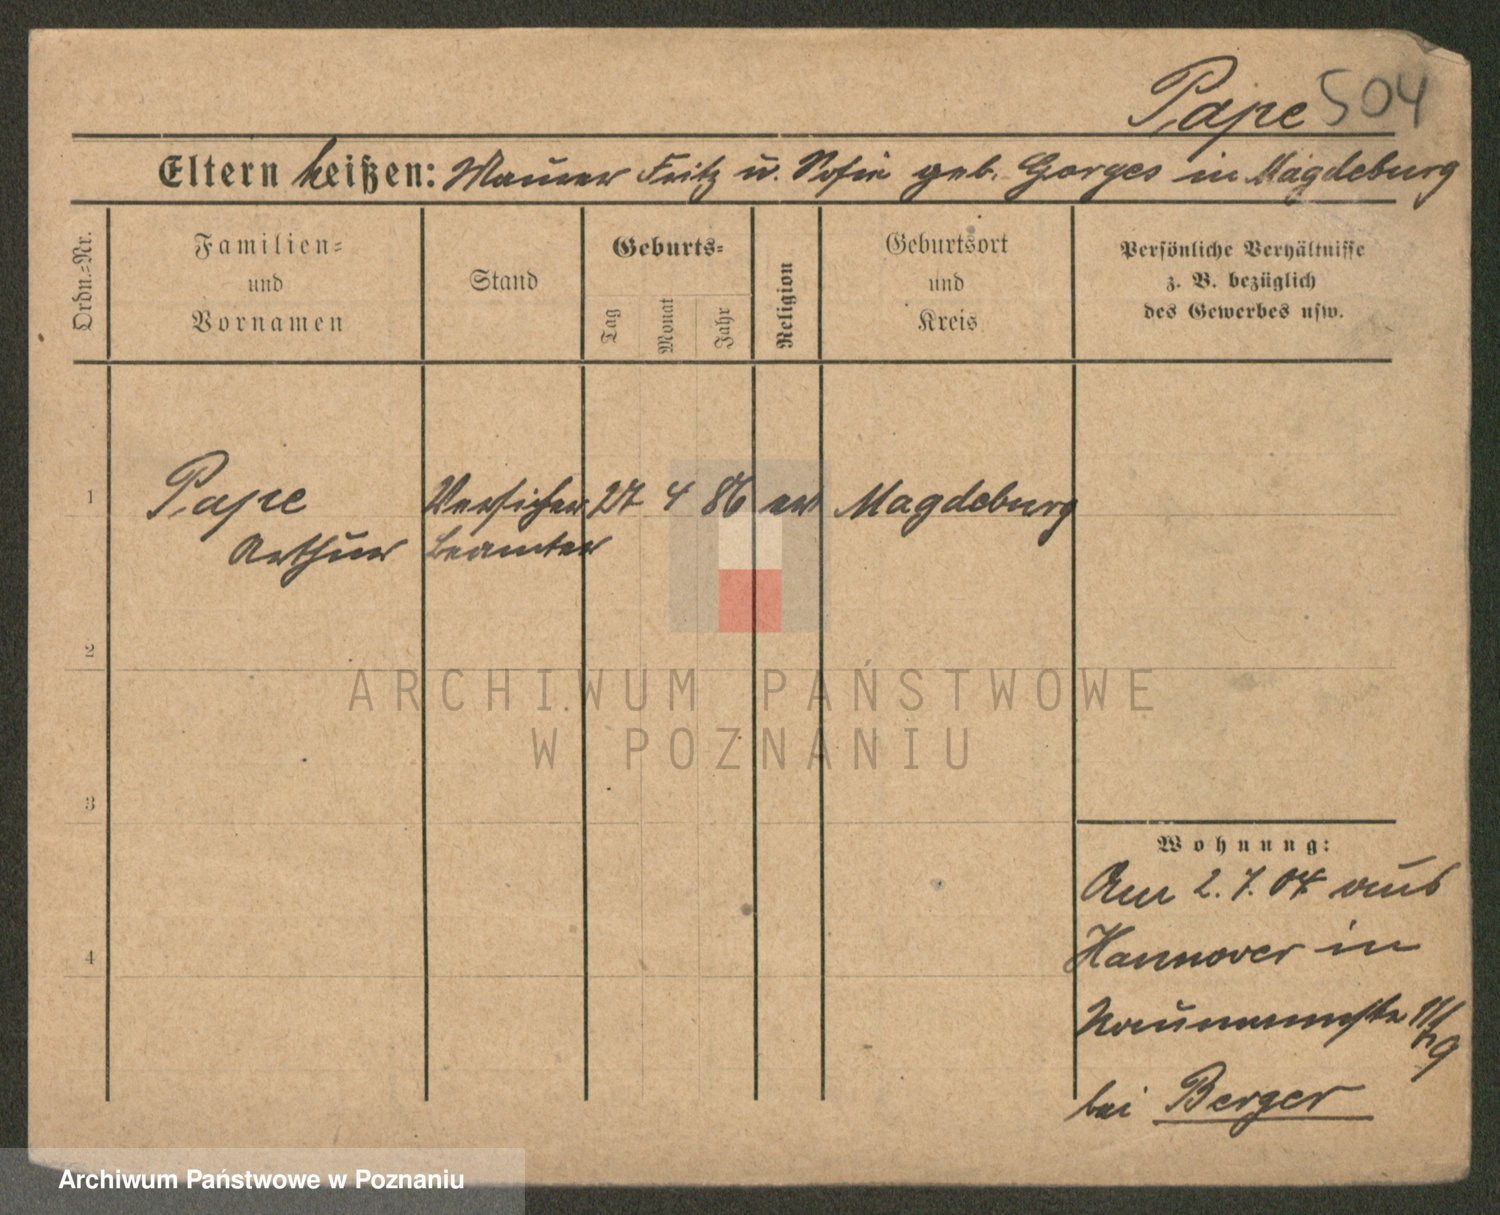 Pape 504
Eltern heißen: Maurer Fritz u. Sofie geb. Gorges in Magdeburg
Ordn.=Nr.
Familien=
und
Vornamen
Stand
Geburts=
Tag
Monat
Jahr
Religion
Geburtsort
und
Kreis
Persönliche Verhältnisse
z. B. bezüglich
des Gewerbes usw.
1
Pape Versicher 27 4 86 ev Magdeburg
Arthur beamter
2
3
4
Wohnung:
Am 2. 7. 07 aus
Hannover in
Naumannstr
bei Berger
ARCHIWUM PAŃSTWOWE
W POZNANIU
Archiwum Państwowe w Poznaniu